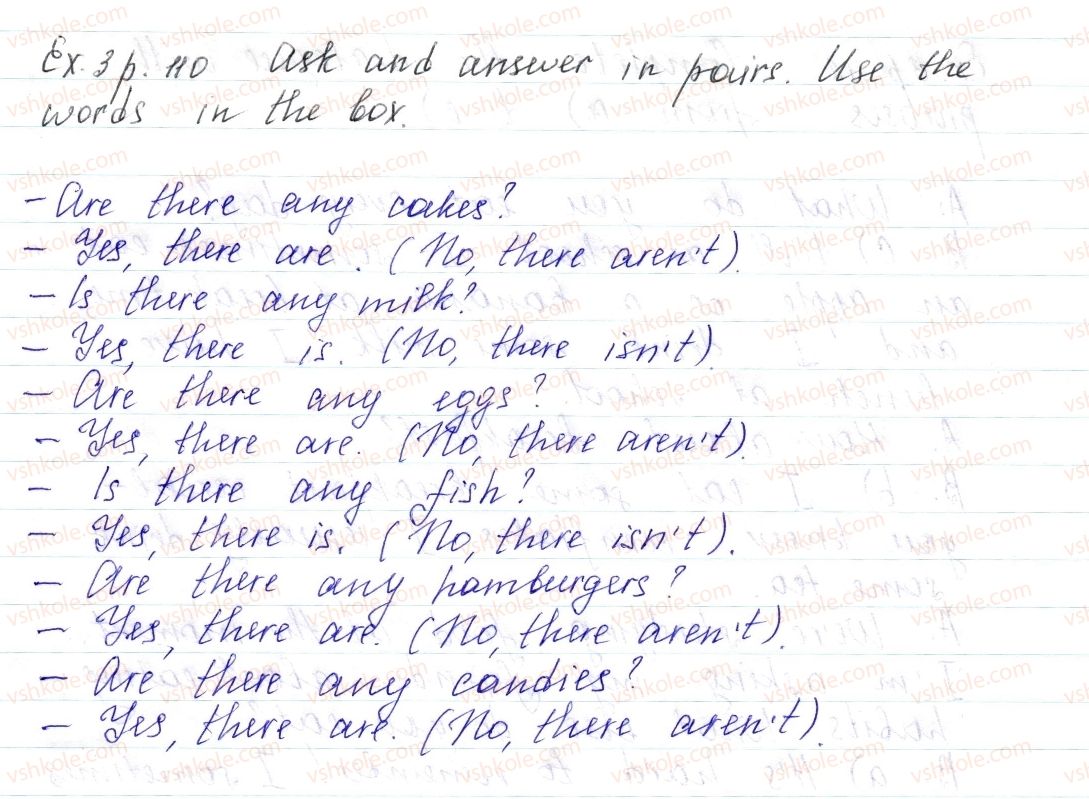 Ex. 3 p. 110 Ask and answer in pairs. Use the
words in the box.
- Are there any cakes?
- Yes, there are. (No, there aren't).
- Is there any milk?
- Yes, there is. (No, there isn't).
- Are there any eggs?
- Yes, there are. (No, there aren't).
- Is there any fish?
- Yes, there is. (No, there isn't).
- Are there any hamburgers?
- Yes, there are. (No, there aren't).
- Are there any candies?
- Yes, there are. (No, there aren't).
vshkole.com